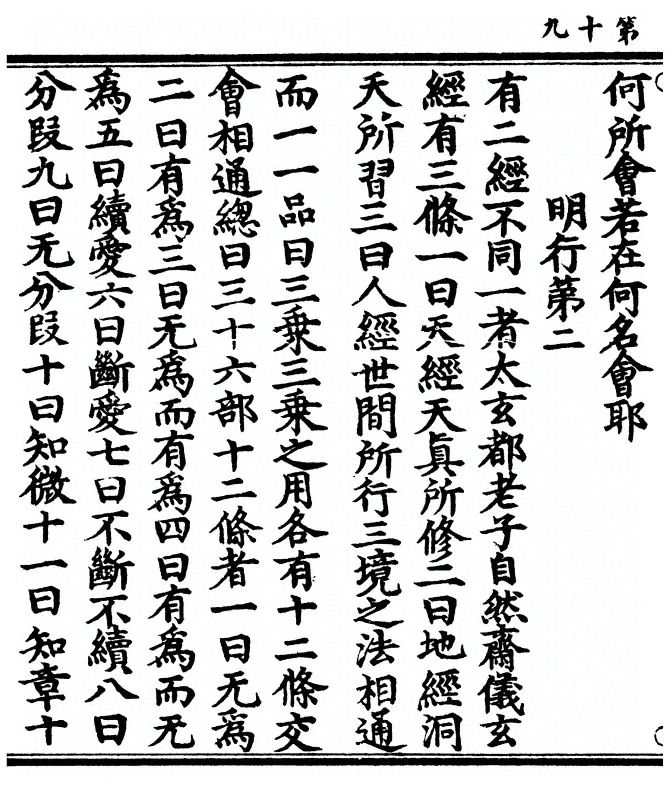 第十九
何所會若在何名會耶
明行第二
有二經不同一者太玄都老子自然齋儀玄
經有三條一曰天經天真所修二曰地經洞
天所習三曰人經世間所行三境之法相通
而一一品曰三乗三乗之用各有十二條交
會相通總曰三十六部十二條者一曰无為
二曰有為三曰无為而有為四曰有為而无
為五曰續愛六曰斷愛七曰不斷不續八曰
分段九曰无分段十曰知微十一曰知章十